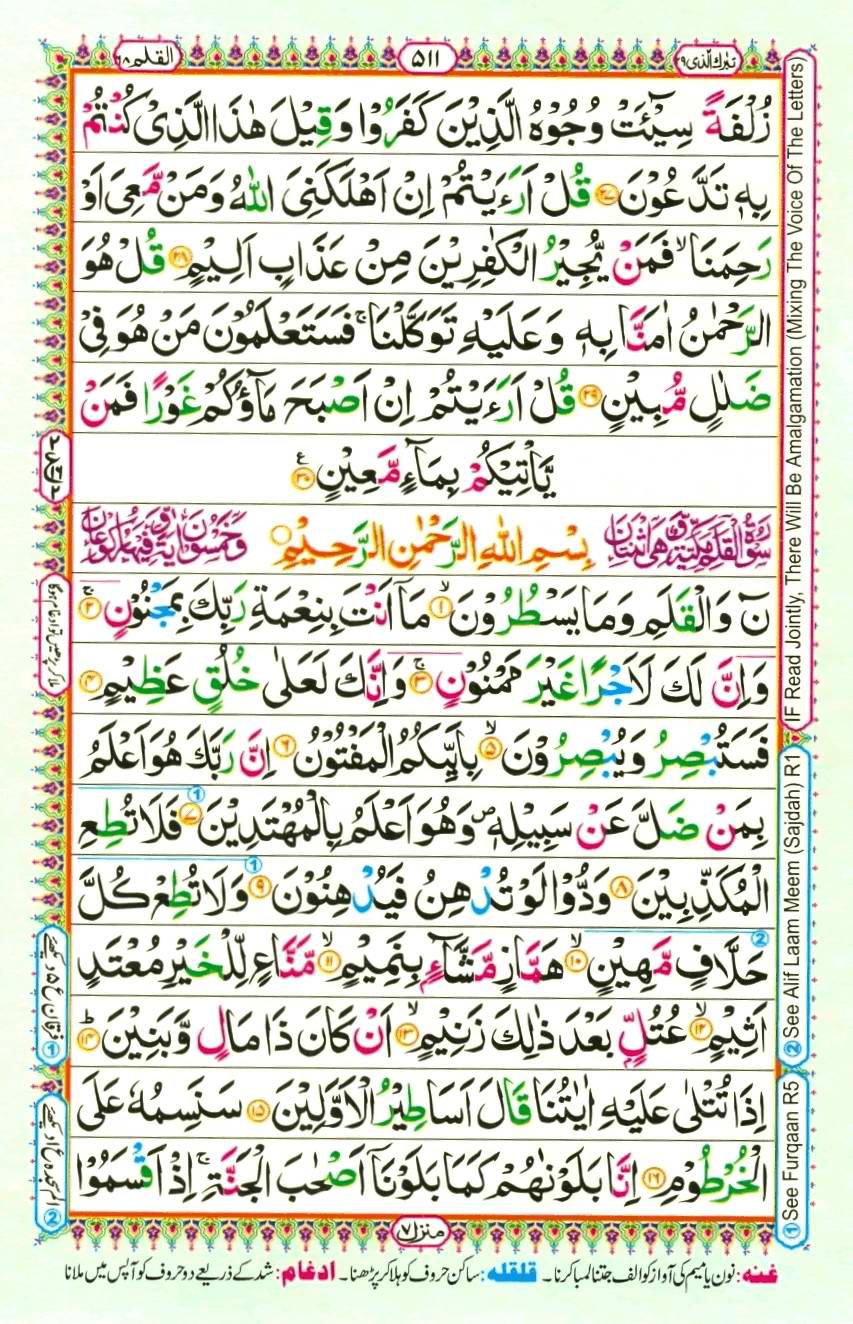 تبٰرك الّذی ٢٩
٥١١
القلم ٦٨
زُلْفَةً سِیْٓـَٔتْ وُجُوْهُ الَّذِیْنَ كَفَرُوْا وَقِیْلَ هٰذَا الَّذِیْ كُنْتُمْ
بِهٖ تَدَّعُوْنَ ۝٢٧ قُلْ اَرَءَیْتُمْ اِنْ اَهْلَكَنِیَ اللّٰهُ وَمَنْ مَّعِیَ اَوْ
رَحِمَنَا ۙ فَمَنْ یُّجِیْرُ الْكٰفِرِیْنَ مِنْ عَذَابٍ اَلِیْمٍ ۝٢٨ قُلْ هُوَ
الرَّحْمٰنُ اٰمَنَّا بِهٖ وَعَلَیْهِ تَوَكَّلْنَا ۚ فَسَتَعْلَمُوْنَ مَنْ هُوَ فِیْ
ضَلٰلٍ مُّبِیْنٍ ۝٢٩ قُلْ اَرَءَیْتُمْ اِنْ اَصْبَحَ مَآؤُكُمْ غَوْرًا فَمَنْ
یَّاْتِیْكُمْ بِمَآءٍ مَّعِیْنٍ ۝٣٠ ع
سُوْرَةُ الْقَلَمِ مَكِّیَّةٌ وَّهِیَ اثْنَتَانِ بِسْمِ اللّٰهِ الرَّحْمٰنِ الرَّحِیْمِ وَخَمْسُوْنَ اٰیَةً وَّفِیْهَا رُكُوْعَانِ
نٓ وَالْقَلَمِ وَمَا یَسْطُرُوْنَ ۙ۝١ مَاۤ اَنْتَ بِنِعْمَةِ رَبِّكَ بِمَجْنُوْنٍ ۚ۝٢
وَاِنَّ لَكَ لَاَجْرًا غَیْرَ مَمْنُوْنٍ ۚ۝٣ وَاِنَّكَ لَعَلٰی خُلُقٍ عَظِیْمٍ ۝٤
فَسَتُبْصِرُ وَیُبْصِرُوْنَ ۙ۝٥ بِاَیِّىكُمُ الْمَفْتُوْنُ ۝٦ اِنَّ رَبَّكَ هُوَ اَعْلَمُ
بِمَنْ ضَلَّ عَنْ سَبِیْلِهٖ ۪ وَهُوَ اَعْلَمُ بِالْمُهْتَدِیْنَ ۝٧ فَلَا تُطِعِ
الْمُكَذِّبِیْنَ ۝٨ وَدُّوْا لَوْ تُدْهِنُ فَیُدْهِنُوْنَ ۝٩ وَلَا تُطِعْ كُلَّ
حَلَّافٍ مَّهِیْنٍ ۙ۝١٠ هَمَّازٍ مَّشَّآءٍۭ بِنَمِیْمٍ ۙ۝١١ مَّنَّاعٍ لِّلْخَیْرِ مُعْتَدٍ
اَثِیْمٍ ۙ۝١٢ عُتُلٍّۭ بَعْدَ ذٰلِكَ زَنِیْمٍ ۙ۝١٣ اَنْ كَانَ ذَا مَالٍ وَّبَنِیْنَ ؕ۝١٤
اِذَا تُتْلٰی عَلَیْهِ اٰیٰتُنَا قَالَ اَسَاطِیْرُ الْاَوَّلِیْنَ ۝١٥ سَنَسِمُهٗ عَلَی
الْخُرْطُوْمِ ۝١٦ اِنَّا بَلَوْنٰهُمْ كَمَا بَلَوْنَاۤ اَصْحٰبَ الْجَنَّةِ ۚ اِذْ اَقْسَمُوْا
منزل ٧
غنه: نون یا میم کی آواز کو الف جتنا لمبا کرنا۔ قلقله: ساکن حروف کو ہلا کر پڑھنا۔ ادغام: شد کے ذریعے دو حروف کو آپس میں ملانا
IF Read Jointly, There Will Be Amalgamation (Mixing The Voice Of The Letters)
② See Alif Laam Meem (Sajdah) R1
① See Furqaan R5
ملا کر پڑھیں تو ادغام ہوگا
① فرقان ع ۵ دیکھئے
② الم سجدہ ع ۱ دیکھئے